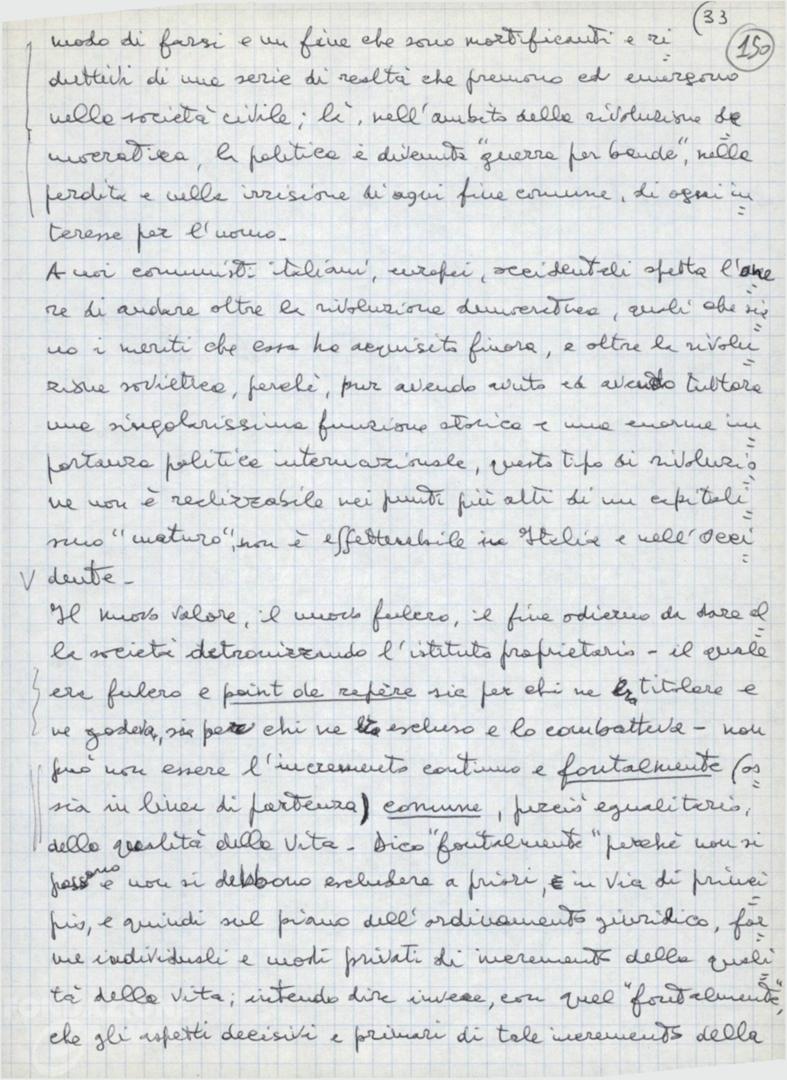 (33
150
modo di farsi e un fine che sono mortificanti e ri=
duttivi di una serie di realtà che premono ed emergono
nella società civile; lì, nell'ambito della rivoluzione de=
mocratica, la politica è divenuta "guerra per bande", nella
perdita e nella irrisione di ogni fine comune, di ogni in=
teresse per l'uomo.
A noi comunisti italiani, europei, occidentali spetta l'one=
re di andare oltre la rivoluzione democratica, quali che sia=
no i meriti che essa ha acquisito finora, e oltre la rivolu=
zione sovietica, perchè, pur avendo avuto ed avendo tuttora
una singolarissima funzione storica e una enorme im=
portanza politica internazionale, questo tipo di rivoluzio=
ne non è realizzabile nei punti più alti di un capitali=
smo "maturo", non è effettuabile in Italia e nell'Occi=
V dente.
Il nuovo valore, il nuovo fulcro, il fine odierno da dare al=
la società detronizzando l'istituto proprietario - il quale
era fulcro e point de repère sia per chi ne era titolare e
ne godeva, sia per chi ne era escluso e lo combatteva - non
può non essere l'incremento continuo e fontalmente (os=
sia in linea di partenza) comune, perciò egualitario,
della qualità della vita. Dico "fontalmente" perchè non si
possono e non si debbono escludere a priori, e in via di princi=
pio, e quindi sul piano dell'ordinamento giuridico, for=
me individuali e modi privati di incremento della quali=
tà della vita; intendo dire invece, con quel "fontalmente",
che gli aspetti decisivi e primari di tale incremento della